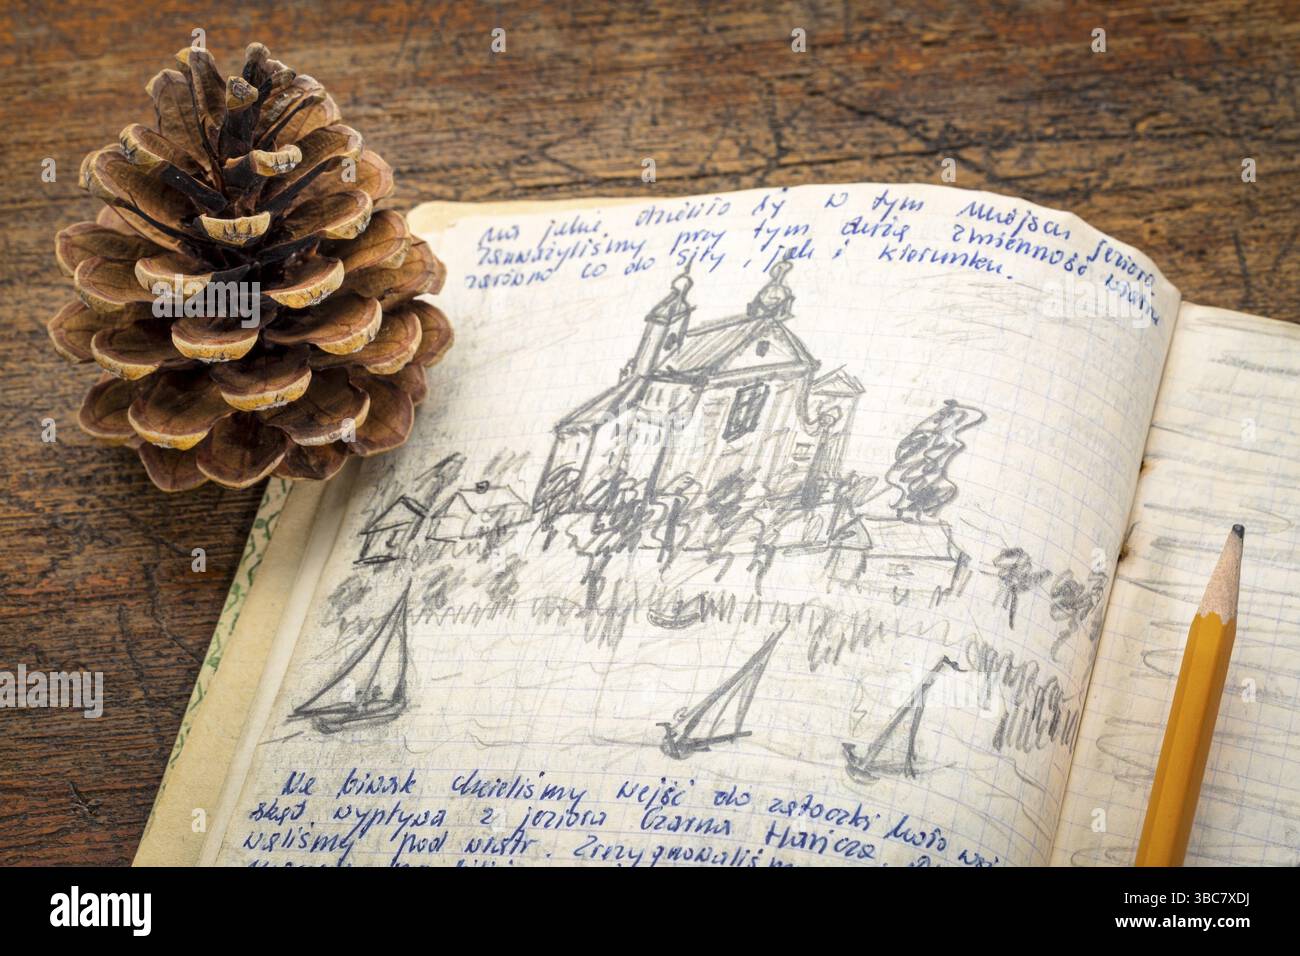 na jakie dzieliło się w tym miejscu jezioro.
Zauważyliśmy przy tym dużą zmienność wiatru
zarówno co do siły, jak i kierunku.
Na biwak chcieliśmy wejść do zatoczki
skąd wypływa z jeziora Czarna Hańcza.
waliśmy pod wiatr. Zrezygnowaliśmy
alamy
Image ID: 3BC7XDJ
www.alamy.com